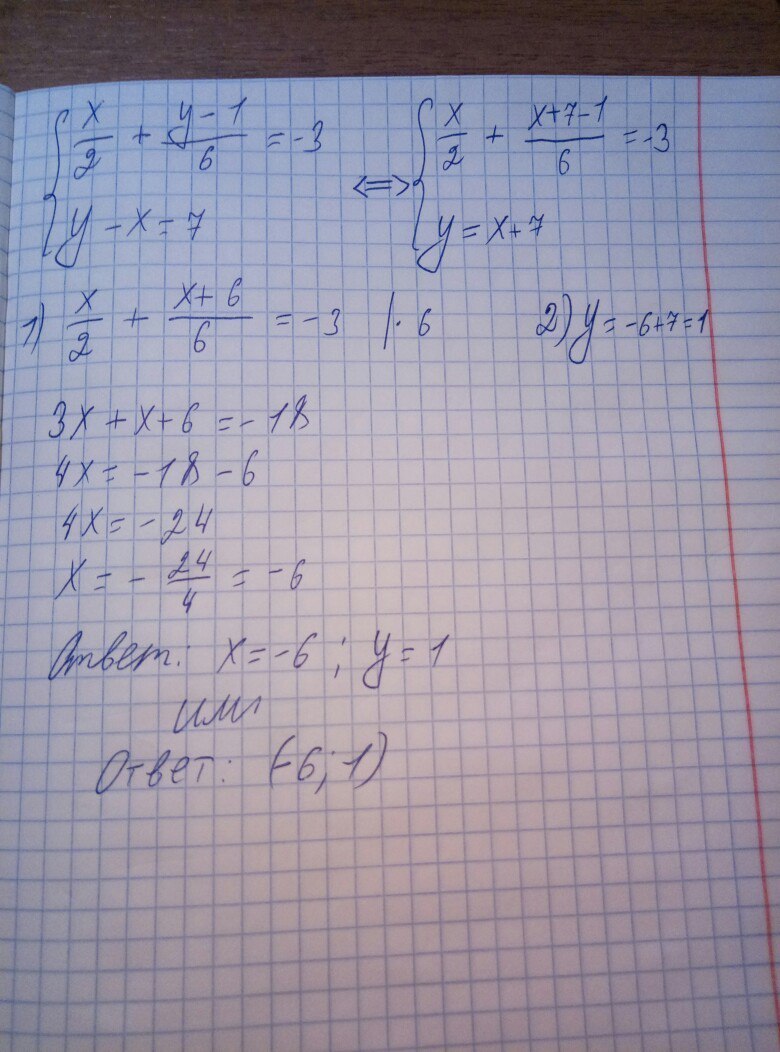 x/2 + (y-1)/6 = -3 <=> x/2 + (x+7-1)/6 = -3
y - x = 7 y = x+7
1) x/2 + (x+6)/6 = -3 |· 6 2) y = -6+7=1
3x + x + 6 = -18
4x = -18 - 6
4x = -24
x = - 24/4 = -6
Ответ: x = -6 ; y = 1
или
Ответ: (-6; 1)